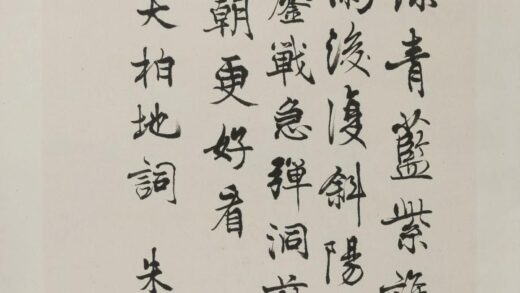 綠青藍紫誰
雨後復斜陽
鏖戰急彈洞前
朝更好看
大柏地詞 朱